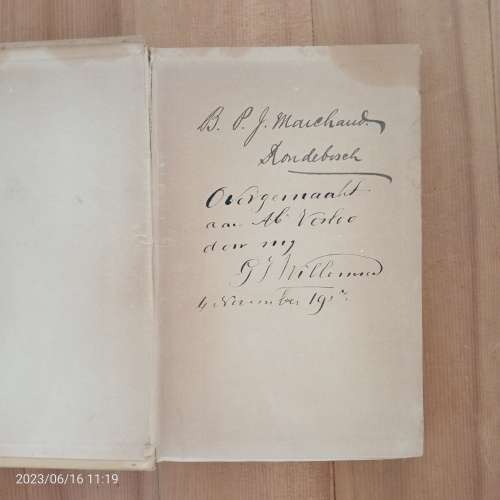 B. P. J. Marchand.
Rondebosch
Overgemaakt
aan
door my
G J Willemse
4 November 19
2023/06/16 11:19